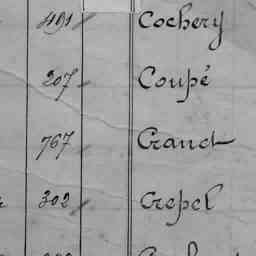 491 Cochery
307 Coupé
767 Craud
302 Crepel